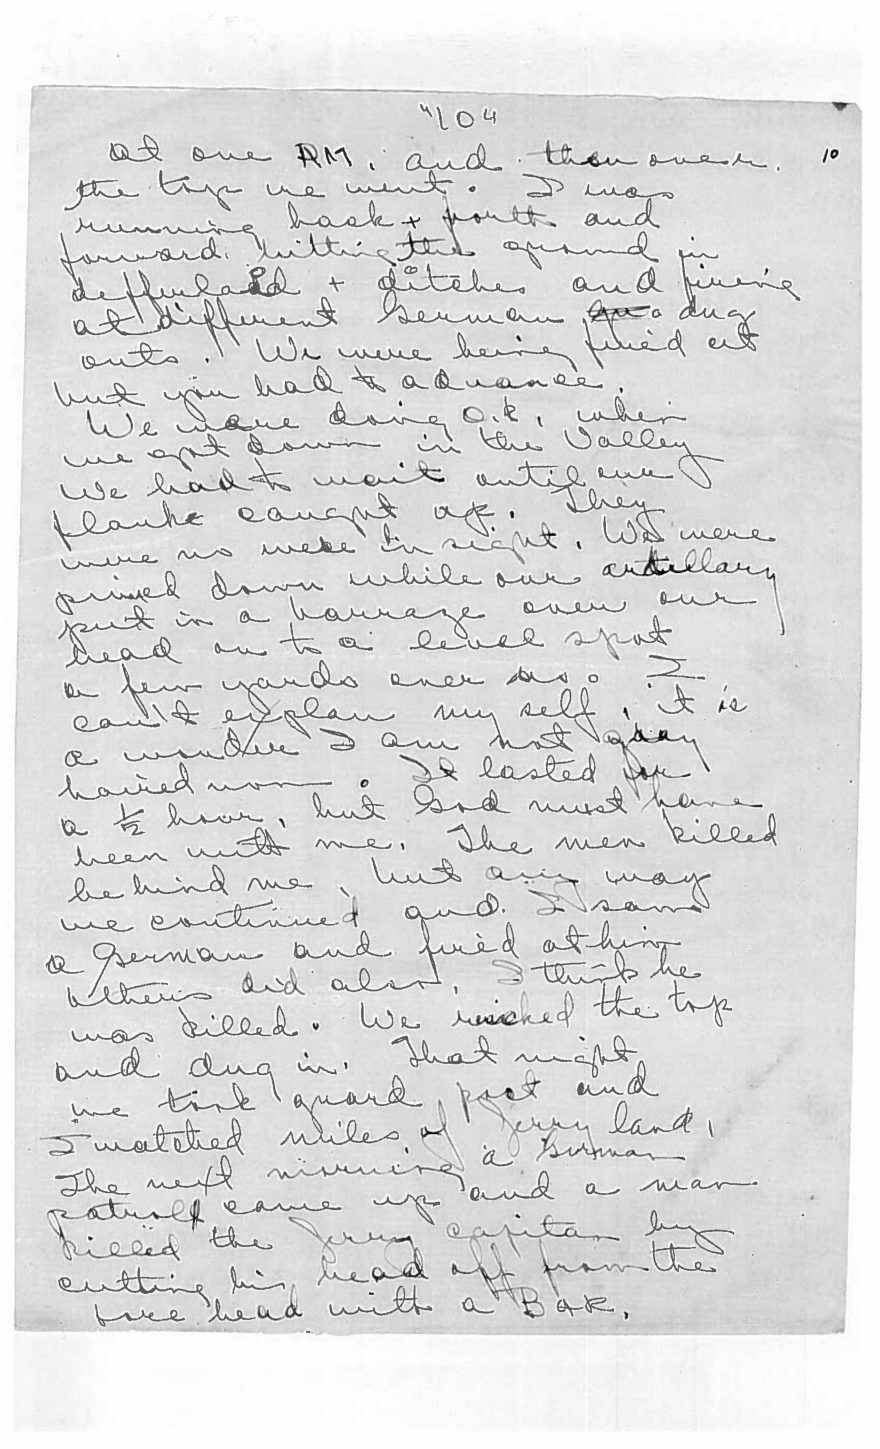 "10"
10
at one PM, and then over
the top we went. I was
running back + fourth and
forward. hitting the ground in
deffulaed + ditches and fireing
at different German dug
outs. We were being fired at
but you had to advance.
We were doing O.K, when
we got down in the Valley
We had to wait until our
flanke caught up. They
were no were in sight. We were
pined down while our artillary
put in a barrage over our
head on to a level spot
a few yards over us. I
can't explan my self, it is
a wonder I am not gray
haired now. It lasted for
a ½ hour, but God must have
been with me. The men killed
behind me, but any way
we continued and. I saw
a German and fired at him
others did also, I think he
was killed. We reached the top
and dug in. That night
we took guard post and
I watched miles of Jerry land,
The next morning a German
patroll came up and a man
killed the Jerry capitan by
cutting his head off from the
fore head with a BAR.